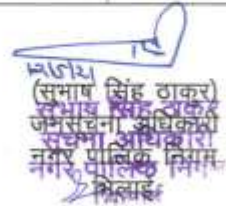 (सुभाष सिंह ठाकुर)
सुभाष सिंह ठाकुर
जनसूचना अधिकारी
सूचना अधिकारी
नगर पालिक निगम
नगर पालिक निगम
भिलाई